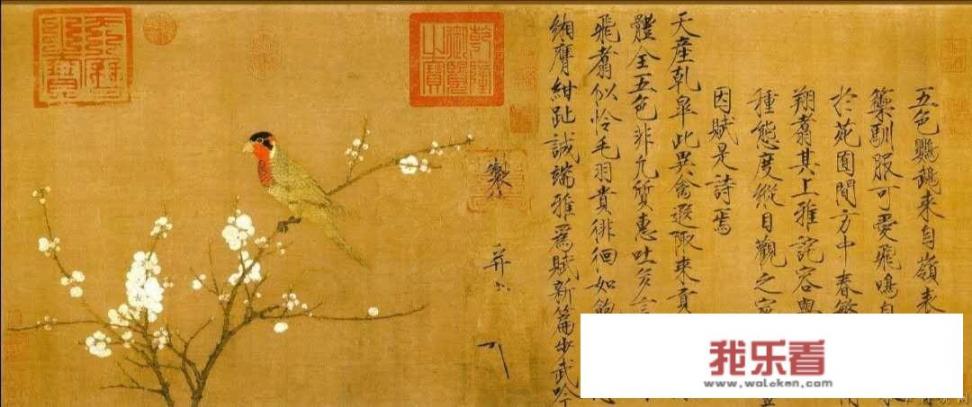 五色鸚鵡来自嶺表
籞馴服可愛飛鳴自
於苑囿間方中春繁
翔翥其上雅詫容與
種態度縱目觀之宛
因賦是詩焉
天産乾皋此異禽遐陬来貢
體全五色非凡質惠吐多言
飛翥似怜毛羽貴徘徊如飽
緗膺紺趾誠端雅爲賦新篇步武吟
我乐看
www.woleken.com